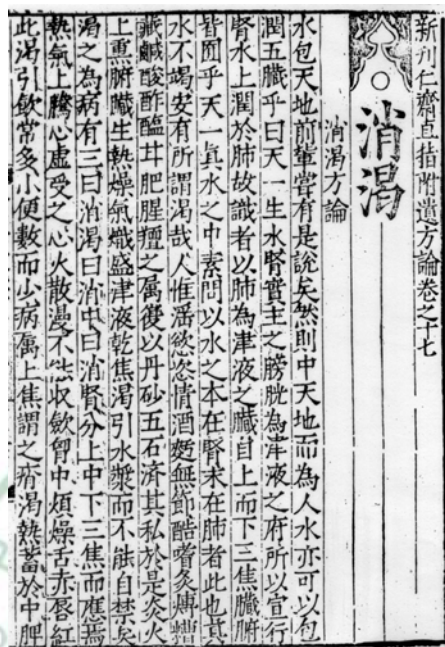 新刊仁齋直指附遺方論卷之十七
消渴
消渴方論
水包天地前輩嘗有是說矣然則中天地而為人水亦可以包
潤五臟乎曰天一生水腎實主之膀胱為津液之府所以宣行
腎水上潤於肺故識者以肺為津液之臟自上而下三焦臟腑
皆囿乎天一真水之中素問以水之本在腎末在肺者此也真
水不竭安有所謂渴哉人惟淫慾恣情酒麪無節酷嗜炙煿糟
藏鹹酸酢醢甘肥腥膻之屬復以丹砂五石濟其私於是炎火
上熏腑臟生熱燥氣熾盛津液乾焦渴引水漿而不能自禁矣
渴之為病有三曰消渴曰消中曰消腎分上中下三焦而應焉
熱氣上騰心虛受之心火散漫不能收歛胷中煩燥舌赤唇紅
此渴引飲常多小便數而少病屬上焦謂之痟渴熱蓄於中脾